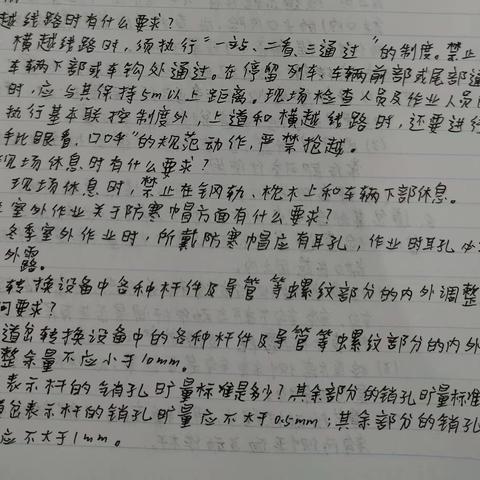 越线路时有什么要求?
横越线路时,须执行"一站、二看、三通过"的制度。禁止
车辆下部或车钩处通过。在停留列车、车辆前部或尾部通
时,应与其保持5m以上距离。现场检查人员及作业人员
执行基本联控制度外,上道和横越线路时,还要进行
手比眼看,口呼"的规范动作,严禁抢越。
现场休息时有什么要求?
现场休息时,禁止在钢轨、枕木上和车辆下部休息。
室外作业关于防寒帽方面有什么要求?
冬季室外作业时,所戴防寒帽应有耳孔,作业时耳孔
外露。
转换设备中各种杆件及导管等螺纹部分的内外调整
何要求?
道岔转换设备中的各种杆件及导管等螺纹部分的内外
整余量不应小于10mm。
表示杆的销孔旷量标准是多少?其余部分的销孔旷量标准
道岔表示杆的销孔旷量应不大于0.5mm;其余部分的销孔
应不大于1mm。